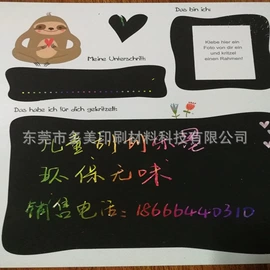 Das bin ich:
Klebe hier ein
Foto von dir ein
und kritzel
einen Rahmen!
Meine Unterschrift:
Das habe ich für dich gekritzelt:
东莞市多美印刷材料科技有限公司
儿童刮刮涂墨
环保无味
销售电话:18666440310